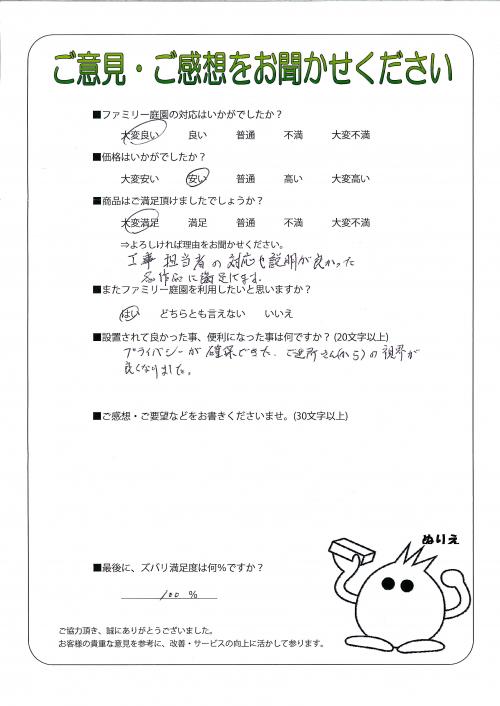 ご意見・ご感想をお聞かせください
■ファミリー庭園の対応はいかがでしたか？
大変良い 良い 普通 不満 大変不満
■価格はいかがでしたか？
大変安い 安い 普通 高い 大変高い
■商品はご満足頂けましたでしょうか？
大変満足 満足 普通 不満 大変不満
⇒よろしければ理由をお聞かせください。
工事担当者の対応も説明が良かった
作品に満足してます。
■またファミリー庭園を利用したいと思いますか？
はい どちらとも言えない いいえ
■設置されて良かった事、便利になった事は何ですか？(20文字以上)
プライバシーが確保できた。ご近所さん(から)の視界が
良くなりました。
■ご感想・ご要望などをお書きくださいませ。(30文字以上)
ぬりえ
■最後に、ズバリ満足度は何%ですか？
100 %
ご協力頂き、誠にありがとうございました。
お客様の貴重な意見を参考に、改善・サービスの向上に活かして参ります。